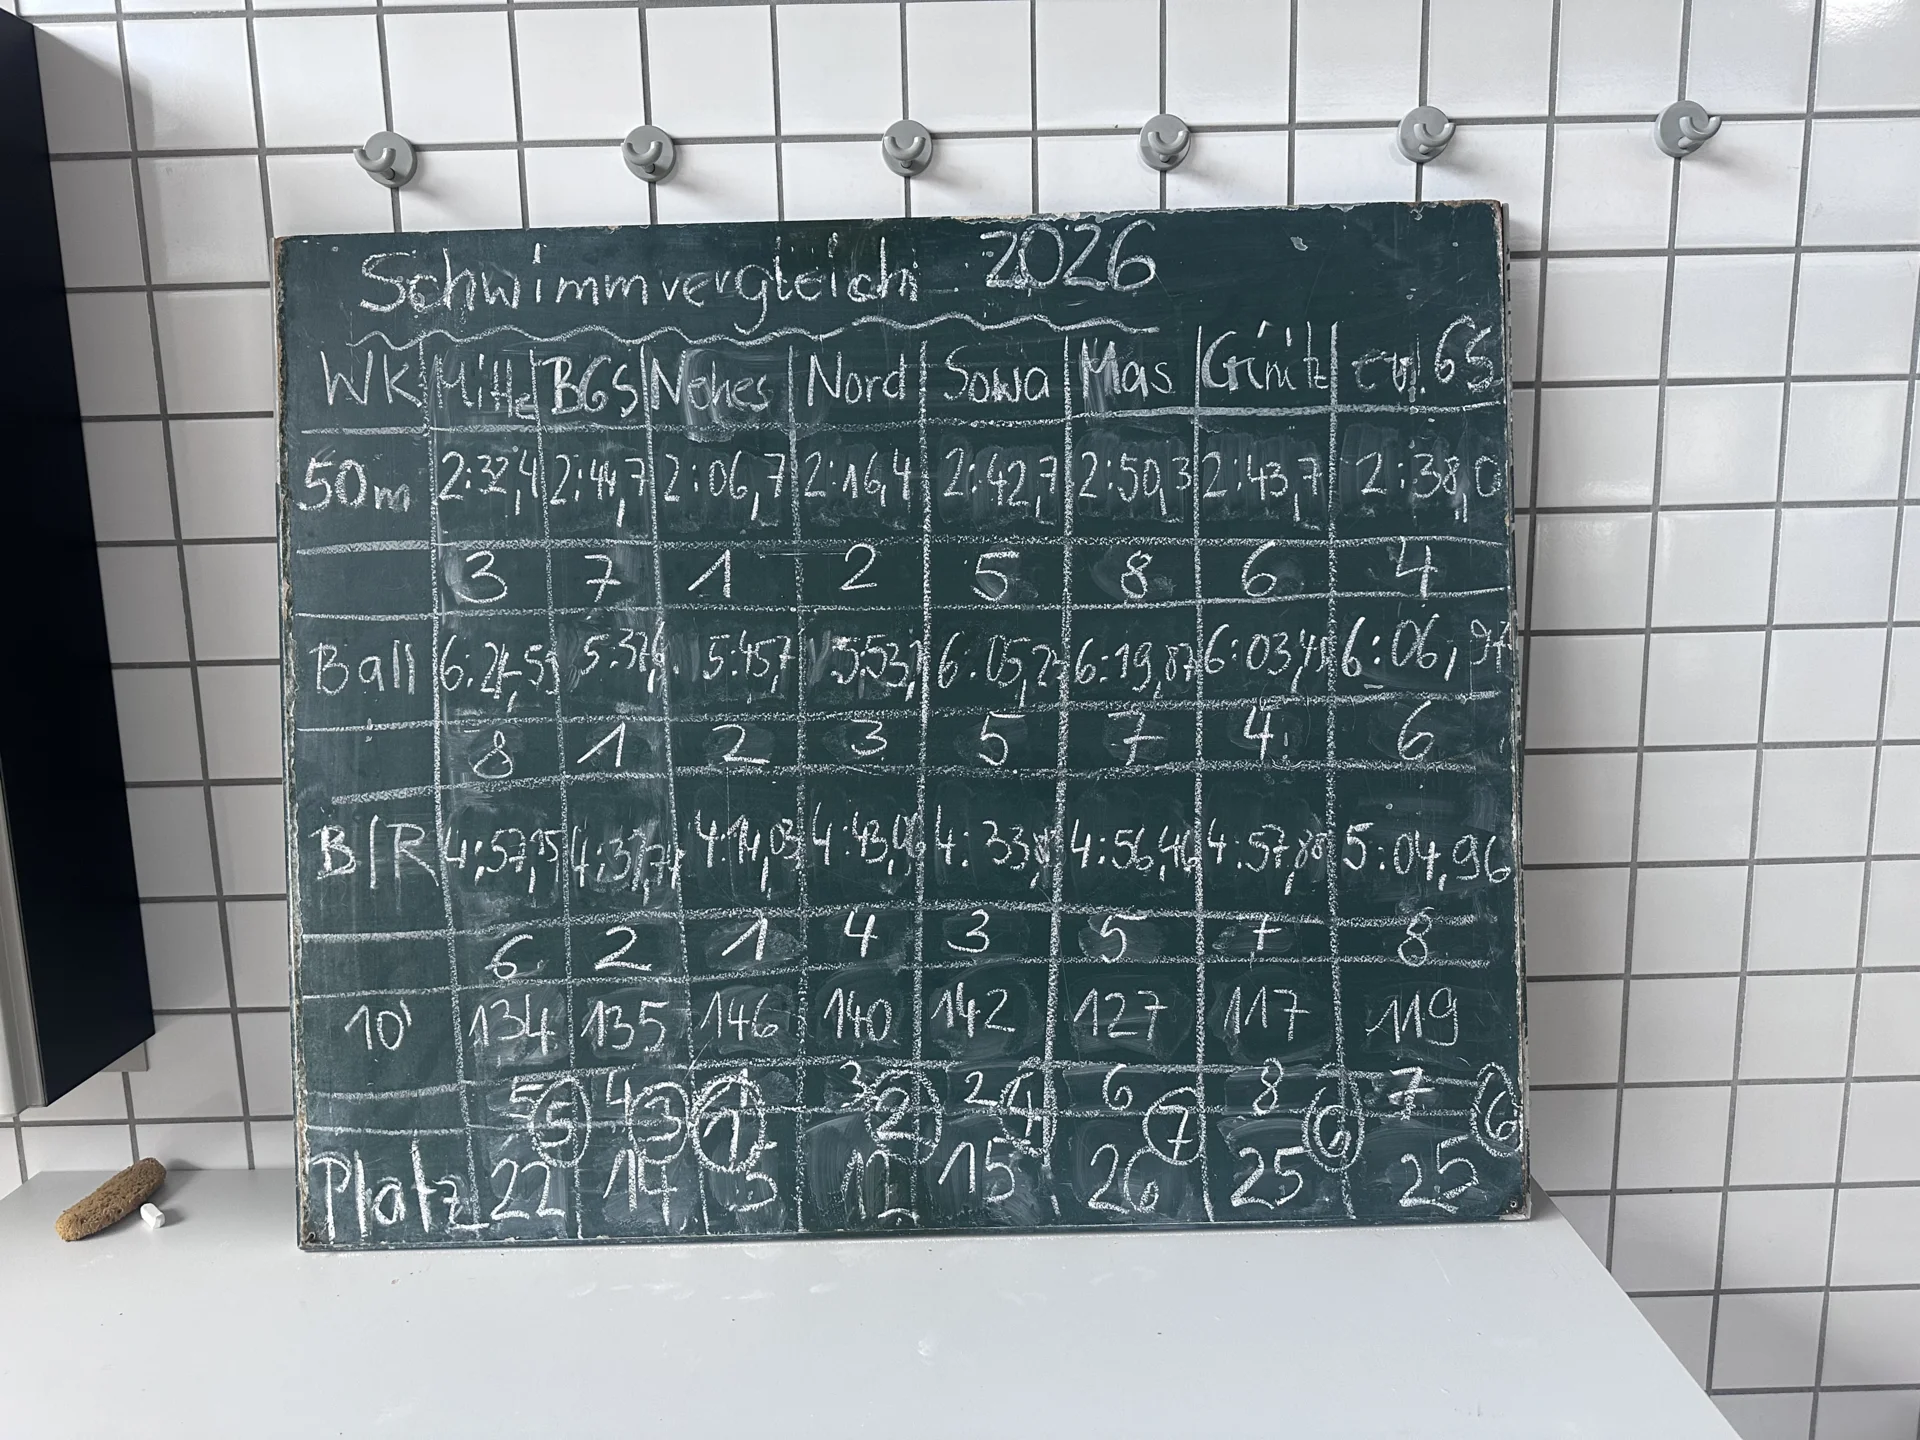 Schwimmvergleich 2026
WK Mitte BGS Nehes Nord Sowa Mas Girnitz ev. GS
50m 2:32,4 2:44,7 2:06,7 2:16,4 2:42,7 2:50,3 2:43,7 2:38,0
3 7 1 2 5 8 6 4
Ball 5:45,7 6:19,87
8 1 2 3 5 7 4 6
B/R 4:57,15 4:37,74 4:14,03 4:56,46 5:04,96
6 2 1 4 3 5 7 8
10' 134 135 146 140 142 127 117 119
5 4 1 3 2 6 8 7
5 3 1 2 4 7 6 6
Platz 22 14 5 12 15 26 25 25